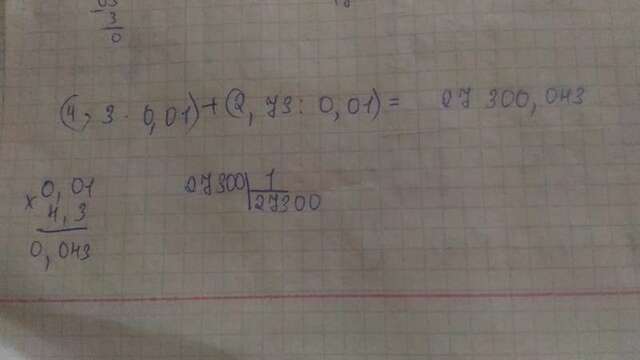 03
3
0
(4,3 · 0,01)+(2,73 : 0,01)= 27 300,043
× 0,01 27300 | 1
4,3 27300
0,043